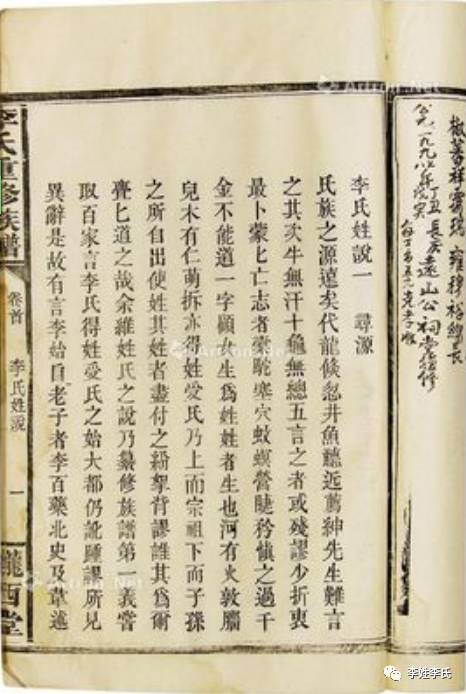 長房遠山公祠堂
李氏姓說一　尋源
氏族之源遠矣代龍倏忽井魚聽近薦紳先生難言
之其次牛無汗十龜無總五言之者或殘謬少折衷
最卜蒙匕亡志者蒙駝塞穴蚊蟆營睫矜慎之過千
金不能道一字顧女生爲姓姓者生也河有火敦腦
兒木有仁萌拆亦得姓受氏乃上而宗祖下而子孫
之所自出使姓其姓者盡付之紛挐背謬誰其爲爾
亹匕道之哉余維姓氏之說乃纂修族譜第一義嘗
取百家言李氏得姓受氏之始大都仍訛踵謬所見
異辭是故有言李始自老子者李百藥北史及韋述
李氏重修族譜　卷首　李氏姓說　一　隴西堂
Artron.Net
李姓李氏